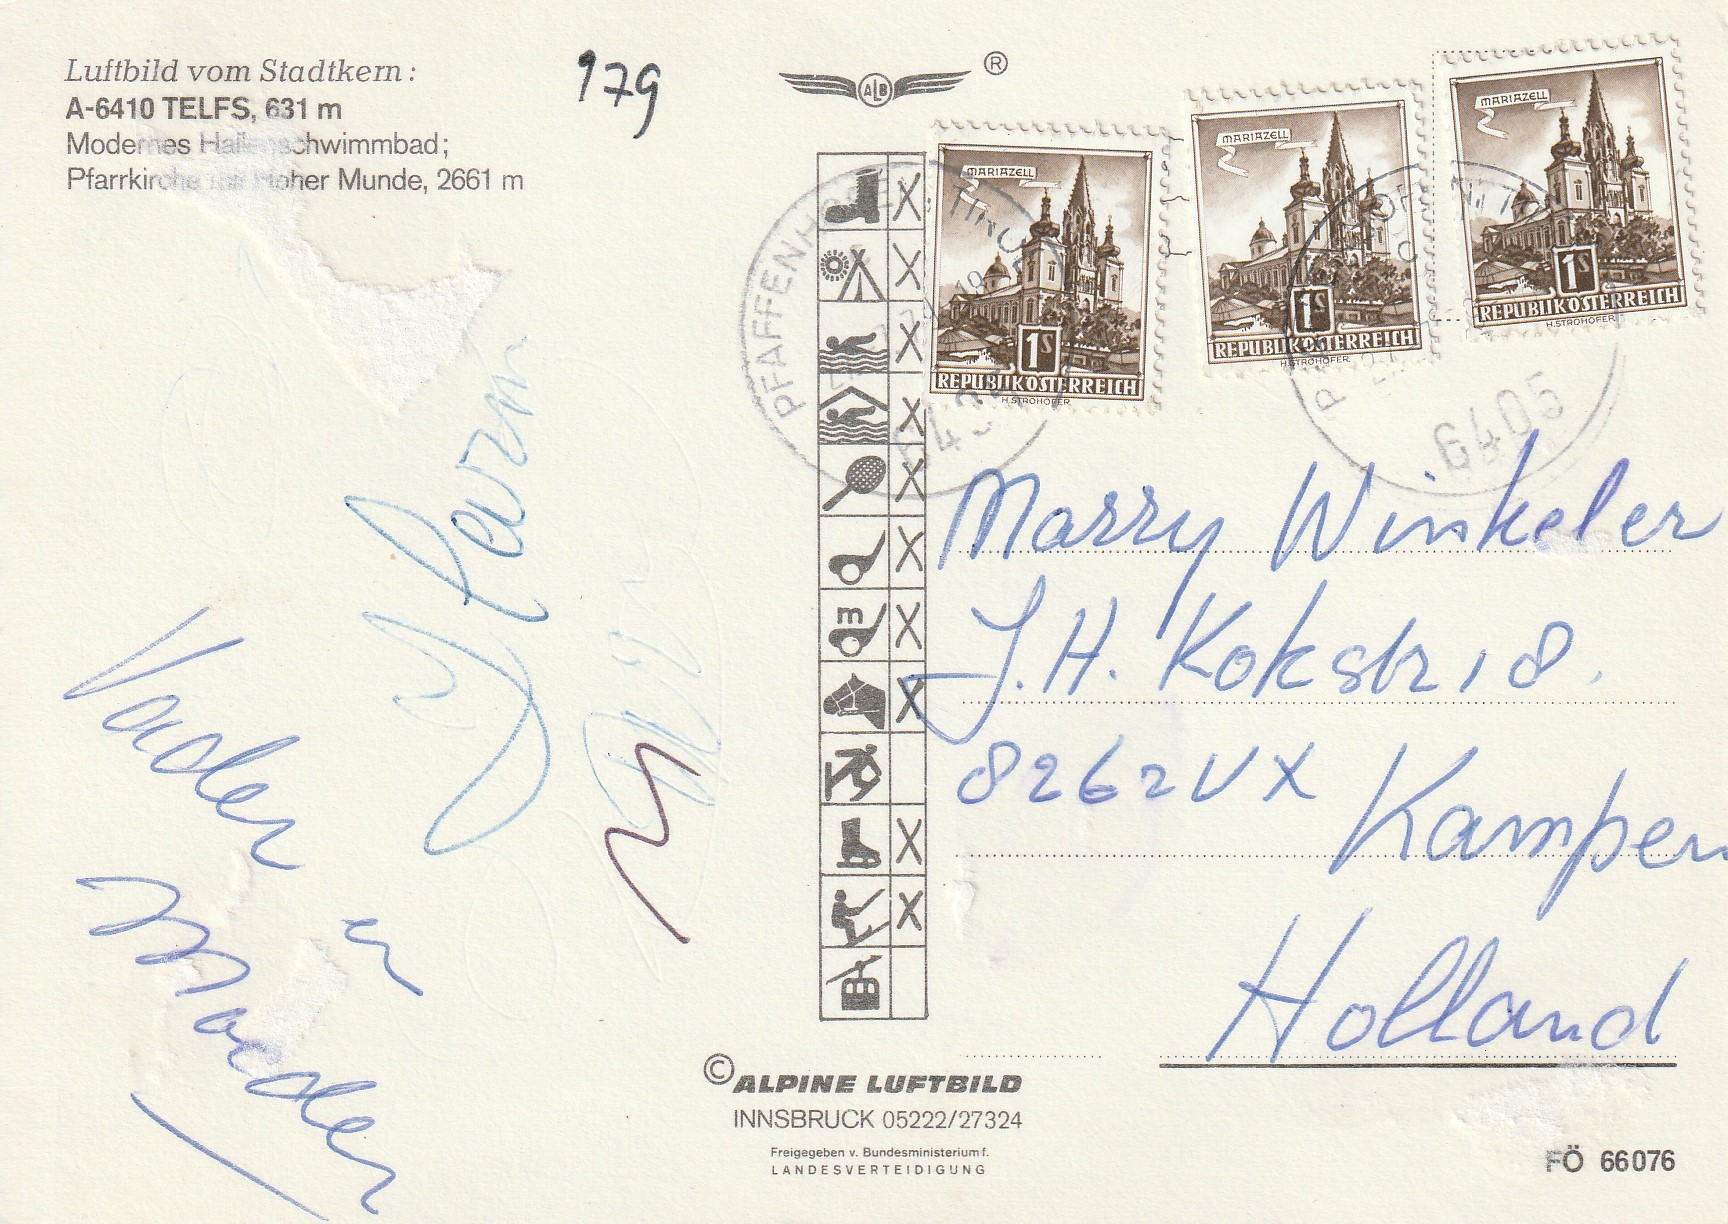 Luftbild vom Stadtkern:
A-6410 TELFS, 631 m
Modernes Hallenschwimmbad;
Pfarrkirche mit Hoher Munde, 2661 m
979
ALB
®
MARIAZELL
1S
REPUBLIK ÖSTERREICH
H.STROHOFER.
MARIAZELL
1S
REPUBLIK ÖSTERREICH
H.STROHOFER.
MARIAZELL
1S
REPUBLIK ÖSTERREICH
H.STROHOFER.
PFAFFENHOFEN
6405
m
Marry Winkeler
J.H. Kokstr 18.
8262VX Kampen
Holland
Vader
en
Moeder
© ALPINE LUFTBILD
INNSBRUCK 05222/27324
Freigegeben v. Bundesministerium f.
LANDESVERTEIDIGUNG
FÖ 66076